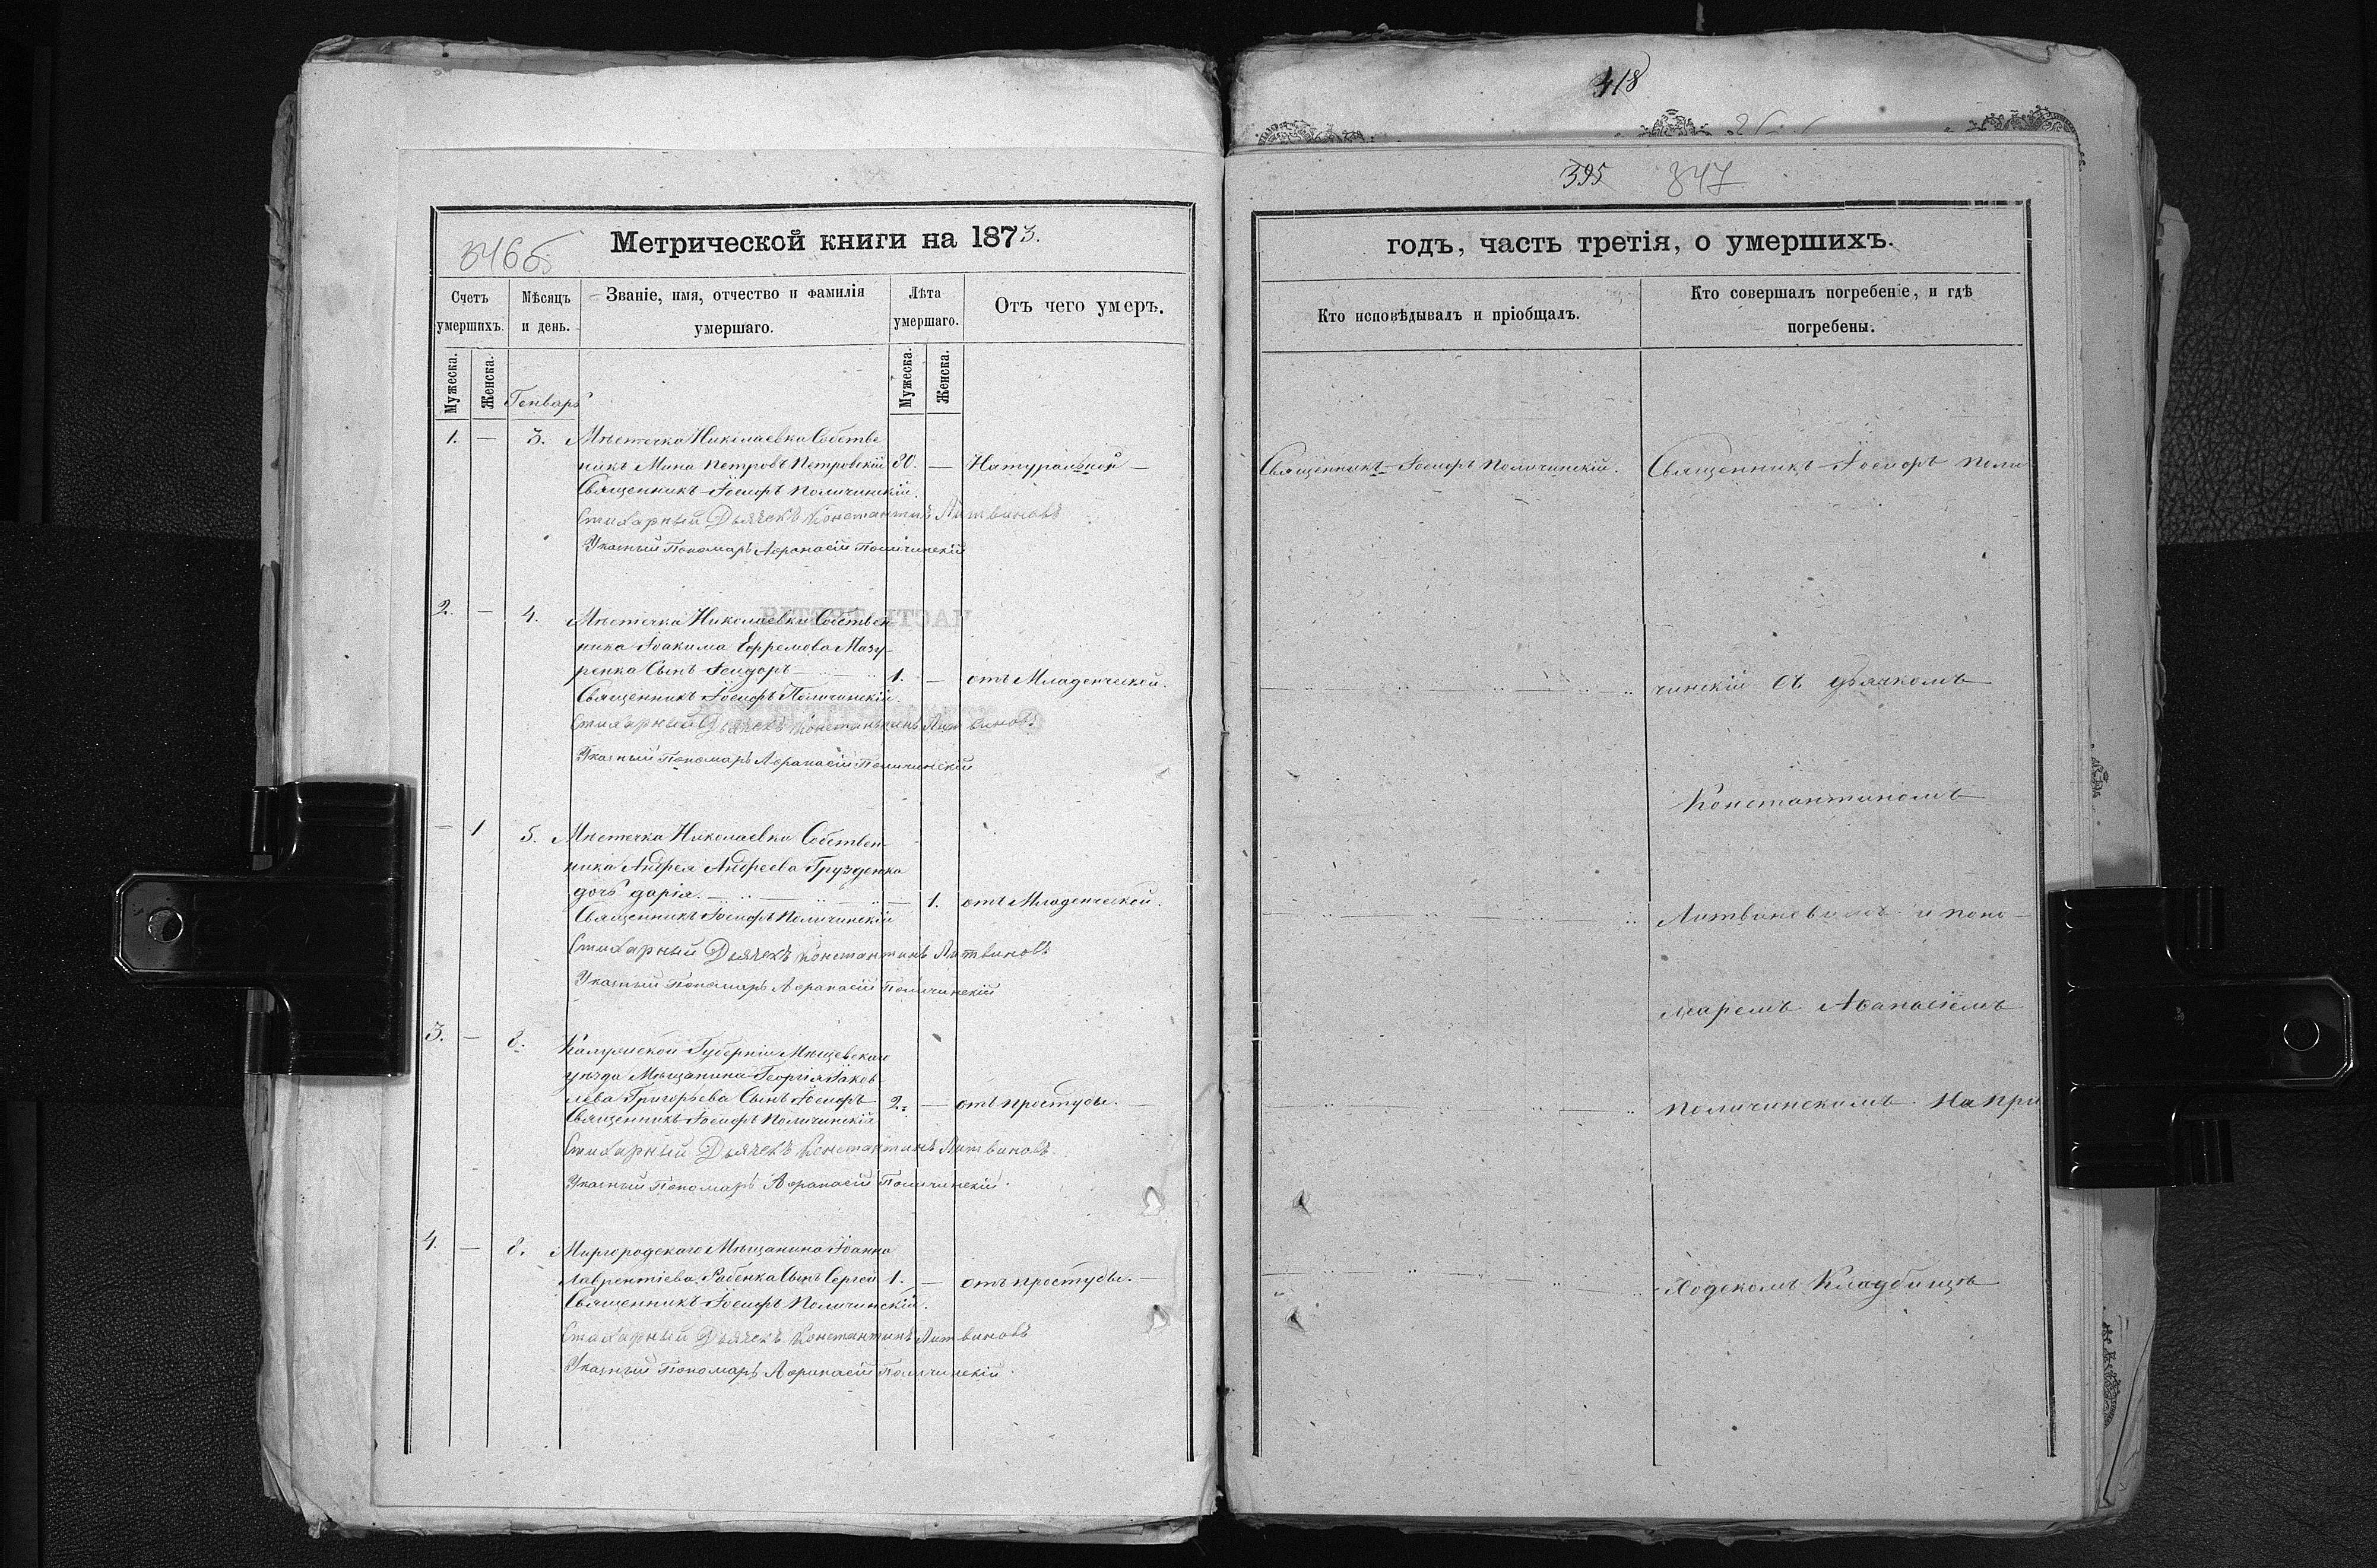 418
395 347
346 б
Метрической книги на 1873.
годъ, часть третія, о умершихъ.
Счетъ умершихъ.
Мѣсяцъ и день.
Званіе, имя, отчество и фамилія умершаго.
Лѣта умершаго.
Отъ чего умеръ.
Кто исповѣдывалъ и пріобщалъ.
Кто совершалъ погребеніе, и гдѣ погребены.
Мужеска.
Женска.
Генварь
Мужеска.
Женска.
1. — 3. Мѣстечка Николаевки Собстве
никъ Мина Петровъ Петровскій 80. — Натуральной —
Священникъ Іосифъ Поличинскій.
Стихарный Дьячекъ Константинъ Литвиновъ
Указный Пономарь Афанасій Поличинскій
2. — 4. Мѣстечка Николаевки Собствен
ника Іоакима Ефремова Мазу-
ренка Сынъ Ѳеидоръ 1. — отъ Младенческой.
Священникъ Іосифъ Поличинскій.
Стихарный Дьячекъ Константинъ Литвиновъ
Указный Пономарь Афанасій Поличинскій
— 1 5. Мѣстечка Николаевки Собствен-
ника Андрея Андреева Грузденка
дочь дарія. — 1. отъ Младенческой.
Священникъ Іосифъ Поличинскій
Стихарный Дьячекъ Константинъ Литвиновъ
Указный Пономарь Афанасій Поличинскій
3. — 8. Калужской Губерніи Мѣщевскаго
уѣзда Мѣщанина Георгія Яков-
лева Григорьева Сынъ Іосифъ 2. — отъ простуды. —
Священникъ Іосифъ Поличинскій
Стихарный Дьячекъ Константинъ Литвиновъ
Указный Пономарь Афанасій Поличинскій.
4. — 8. Миргородскаго Мѣщанина Іоанна
Лаврентіева Сынъ Сергей 1. — отъ простуды. —
Священникъ Іосифъ Поличинскій.
Стихарный Дьячекъ Константинъ Литвиновъ
Указный Пономарь Афанасій Поличинскій.
Священникъ Іосифъ Поличинскій.
Священникъ Іосифъ Поли
чинскій съ дьячкомъ
Константиномъ
Литвиновымъ и поно-
маремъ Аѳанасіемъ
Поличинскимъ На При
ходскомъ Кладбищѣ